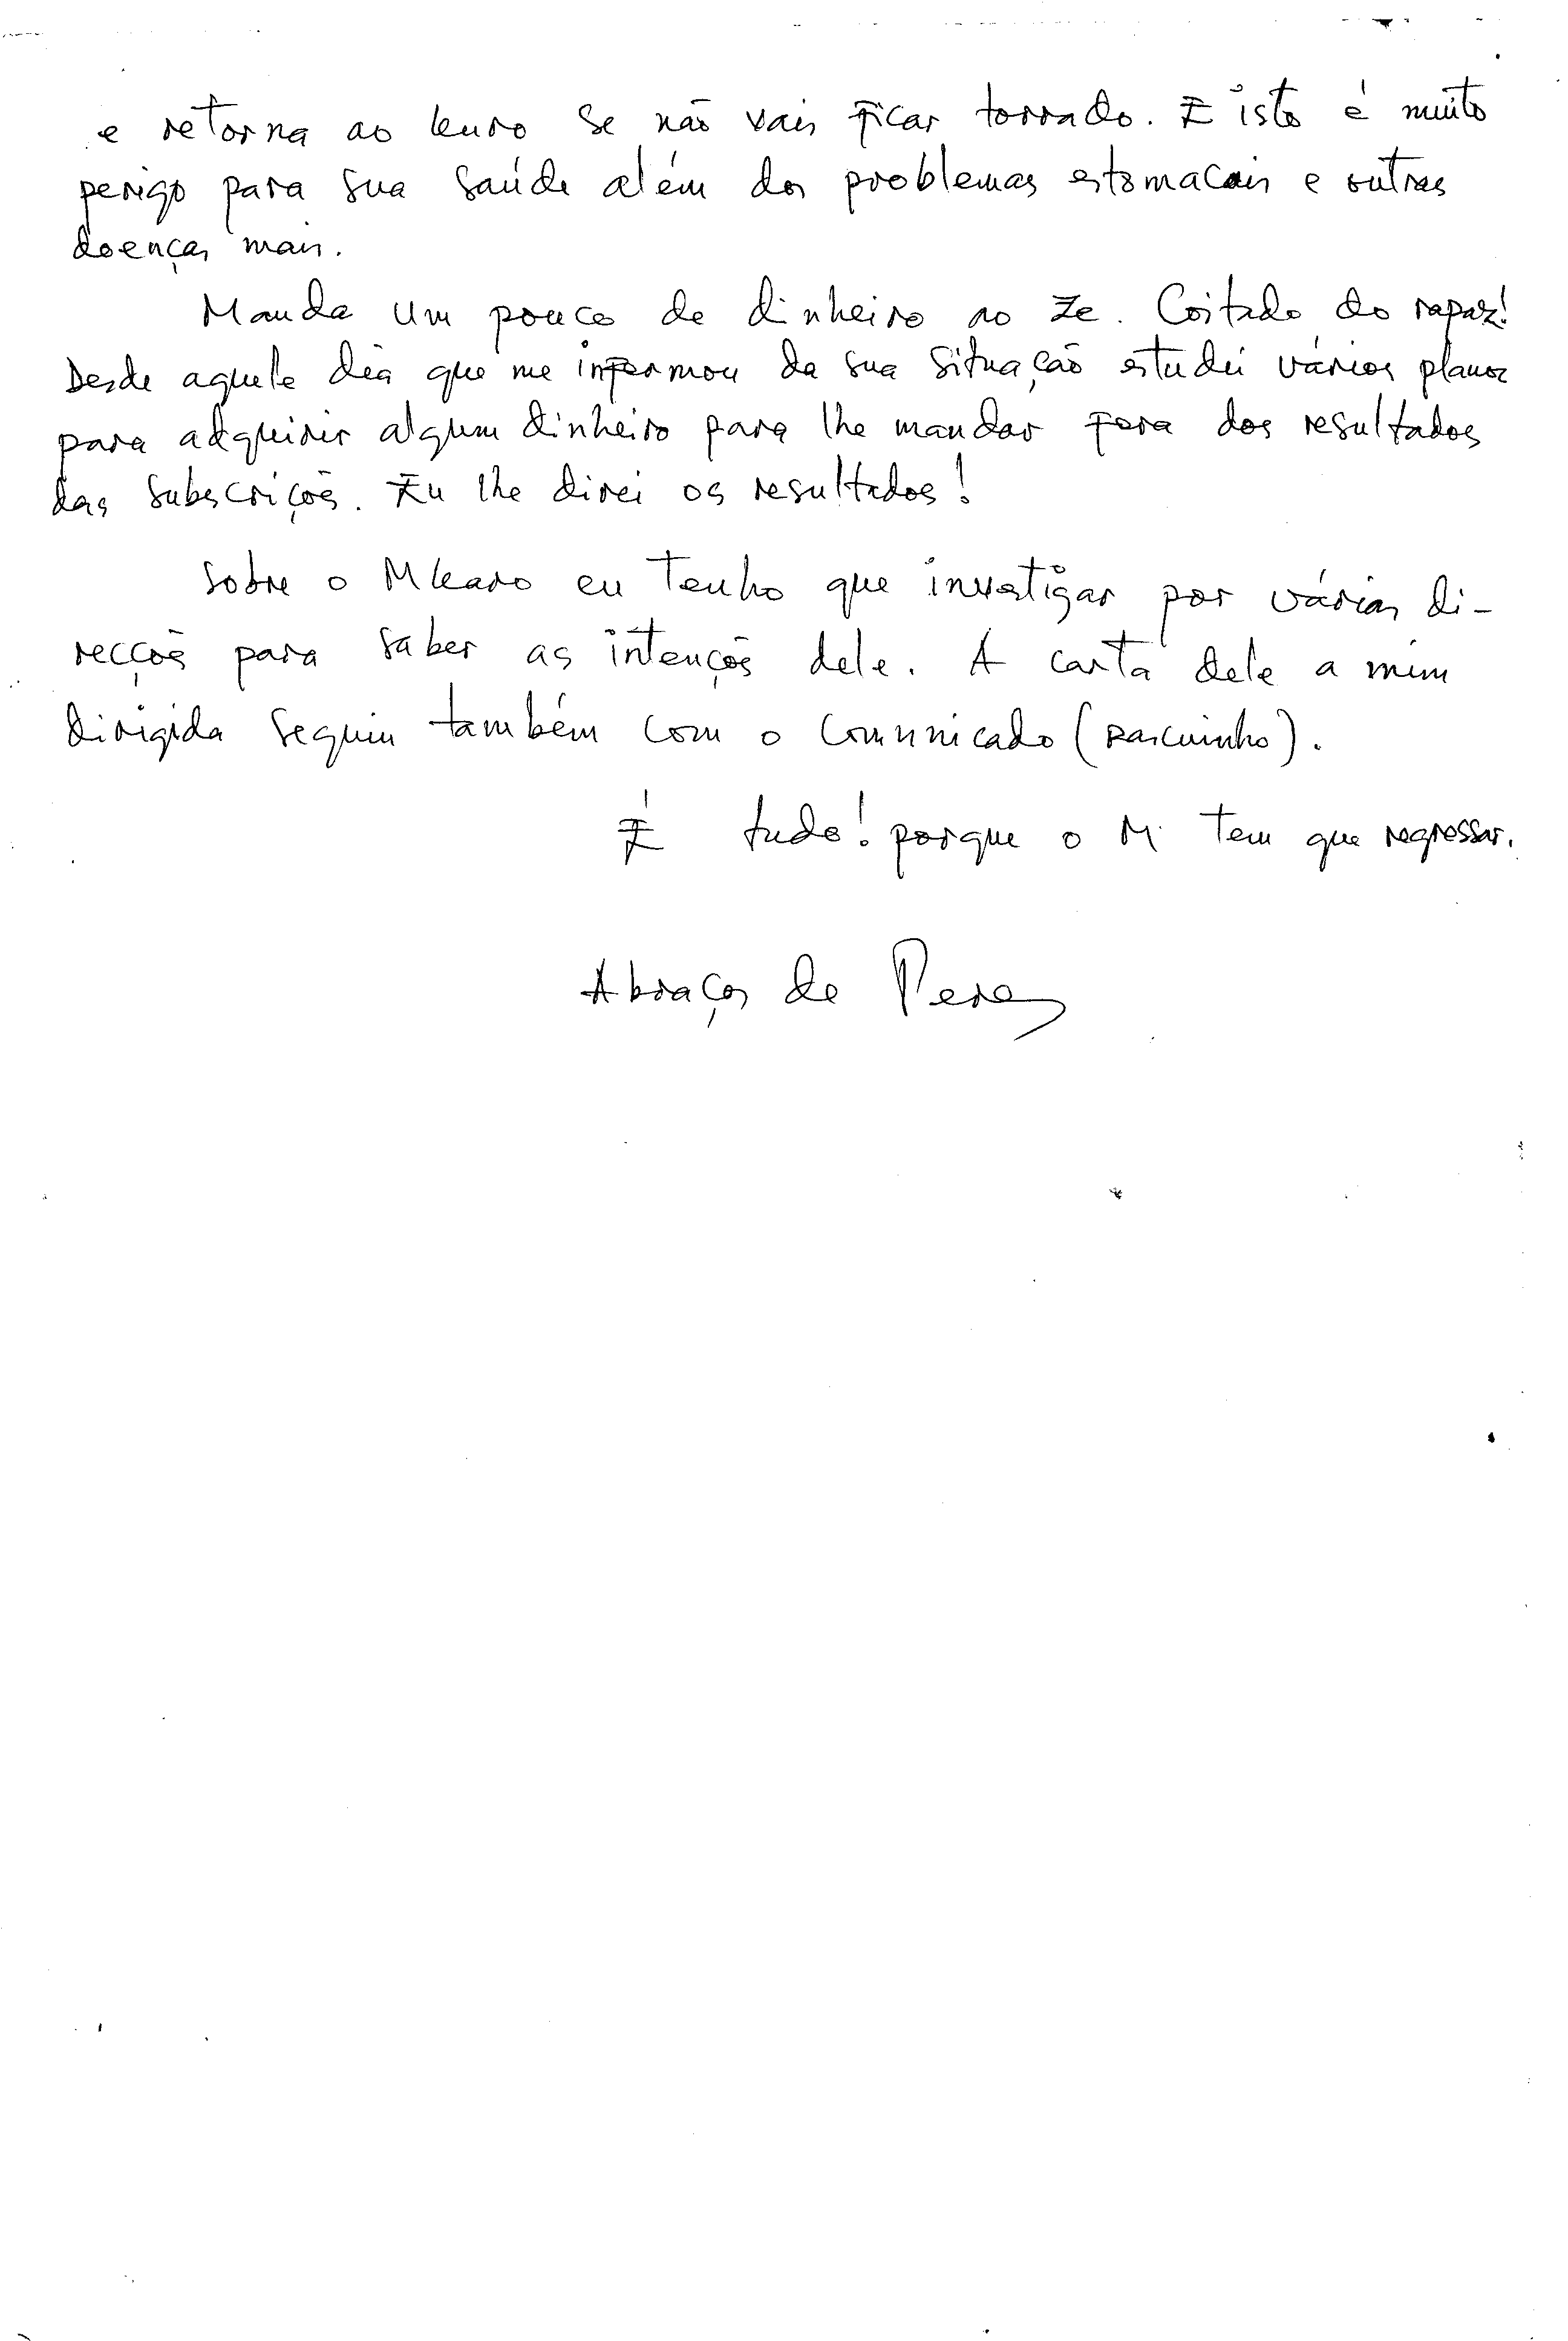 e retorna ao kuro se não vais ficar torrado. E isto é muito
perigo para sua saúde além dos problemas estomacais e outras
doenças mais.
Manda um pouco de dinheiro ao Ze. Coitado do rapaz!
Desde aquele dia que me informou da sua situação estudei vários planos
para adquirir algum dinheiro para lhe mandar fora dos resultados
das subscriçõs. Eu lhe direi os resultados!
Sobre o Mkaro eu tenho que investigar por várias di-
recçõs para saber as intençõs dele. A carta dele a mim
dirigida seguiu também com o comunicado (rascuinho).
É tudo! porque o M. tem que regressar.
Abraços de